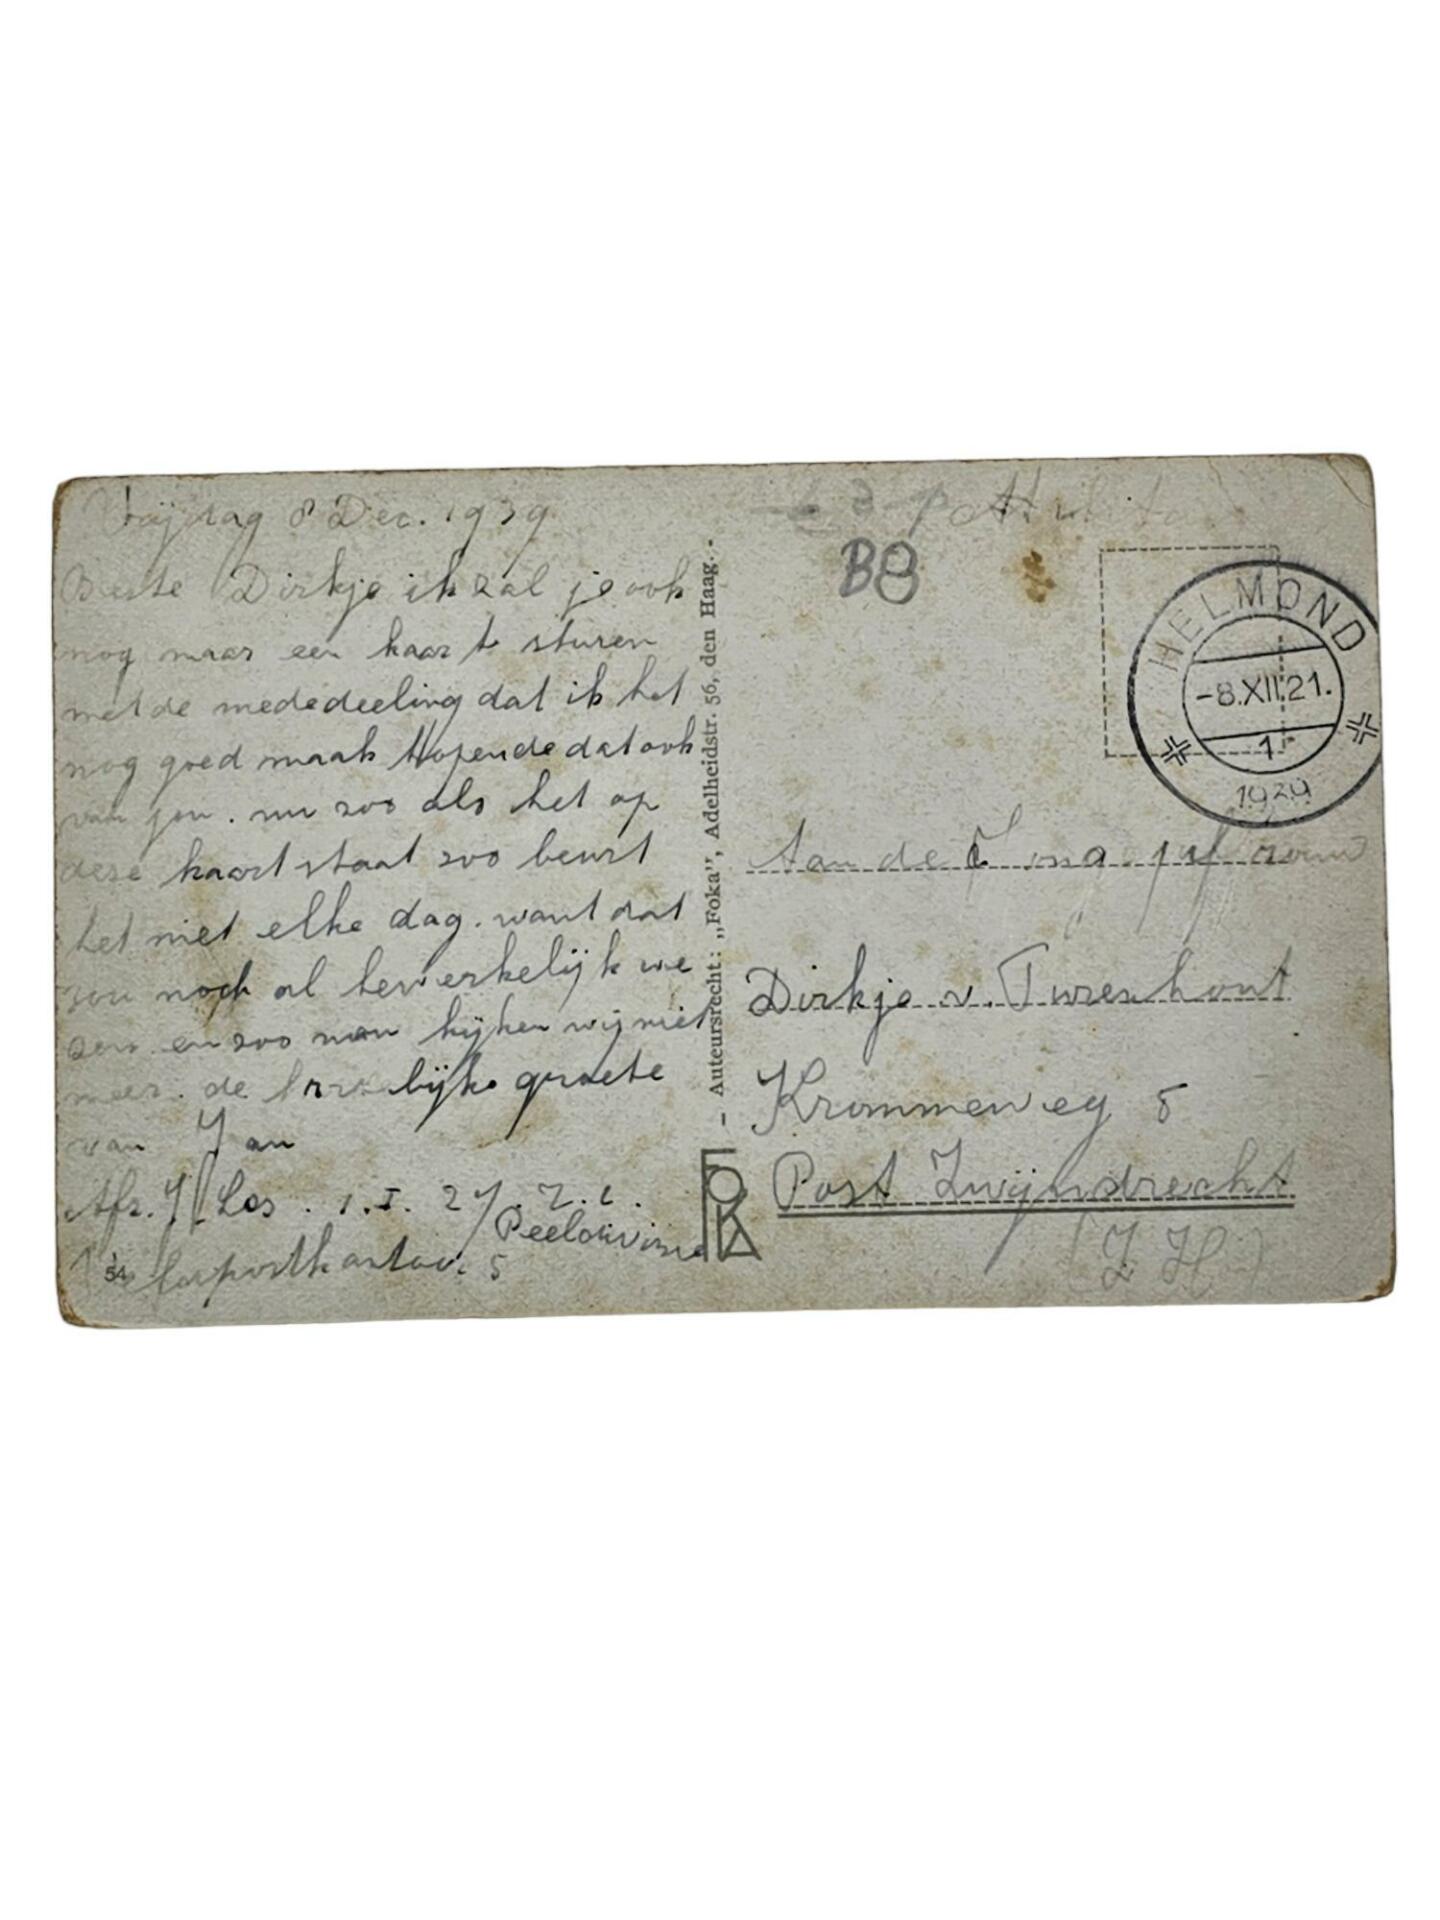 Vrijdag 8 Dec. 1939
Beste Dirkje ik zal je ook
nog maar een kaart sturen
met de mededeeling dat ik het
nog goed maak Hopende dat ook
van jou. nu zoo als het op
deze kaart staat zoo beurt
het niet elke dag. want dat
zou noch al bewerkelijk we
zen en zoo nou kijken wij niet
meer. de hartelijke groete
van Jan
Afz. J. Los . 1. I. 27. R.I.
Peeldivisie
Veldpostkantoor 5
54
- Auteursrecht: „Foka", Adelheidstr. 56, den Haag. -
FOKA
B8
HELMOND
-8.XII.21.
1
1939
Aan de Jongejuffrouw
Dirkje v. Twreshout
Krommeweg 8
Post Zwijndrecht
(Z H)